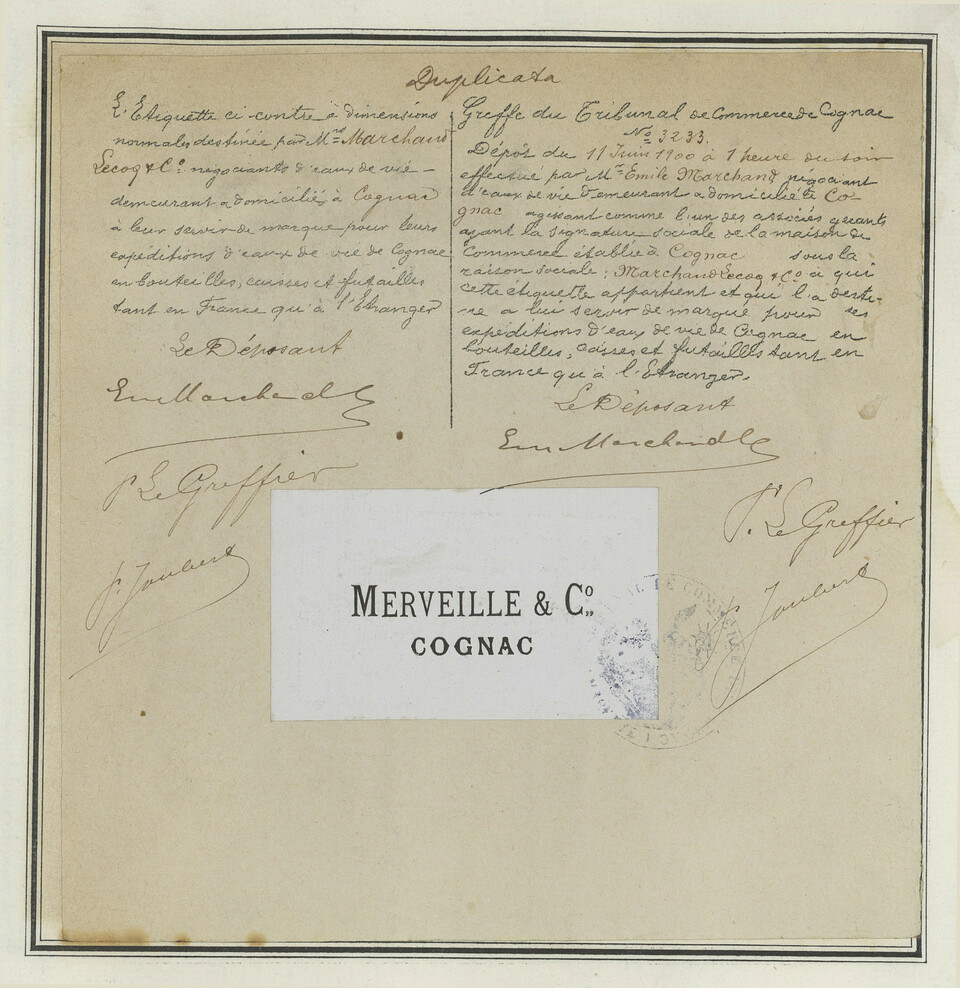 Duplicata
L'Etiquette ci contre à dimensions
normales destinée par Mrs Marchand
Lecoq & Co. négociants d'eaux de vie -
demeurant & domiciliés à Cognac
à leur servir de marque pour leurs
expéditions d'eaux de vie de Cognac
en bouteilles, caisses et futailles
tant en France qu'à l'Etranger
Le Déposant
Em Marchand
P. Le Greffier
P. Joubert
Greffe du Tribunal de Commerce de Cognac
No 3233.
Dépôt du 11 Juin 1900 à 1 heure du soir
effectué par Mr Emile Marchand négociant
d'eaux de vie demeurant & domicilié à Co-
gnac agissant comme l'un des associés gérants
ayant la signature sociale de la maison de
Commerce établie à Cognac sous la
raison sociale; Marchand Lecoq & Co à qui
cette étiquette appartient et qui l'a desti-
née à lui servir de marque pour ses
expéditions d'eaux de vie de Cognac en
bouteilles, caisses et futailles tant en
France qu'à l'Etranger.
Le Déposant
Em Marchand
P. Le Greffier
P. Joubert
MERVEILLE & Co.
COGNAC
TRIBUNAL DE COMMERCE